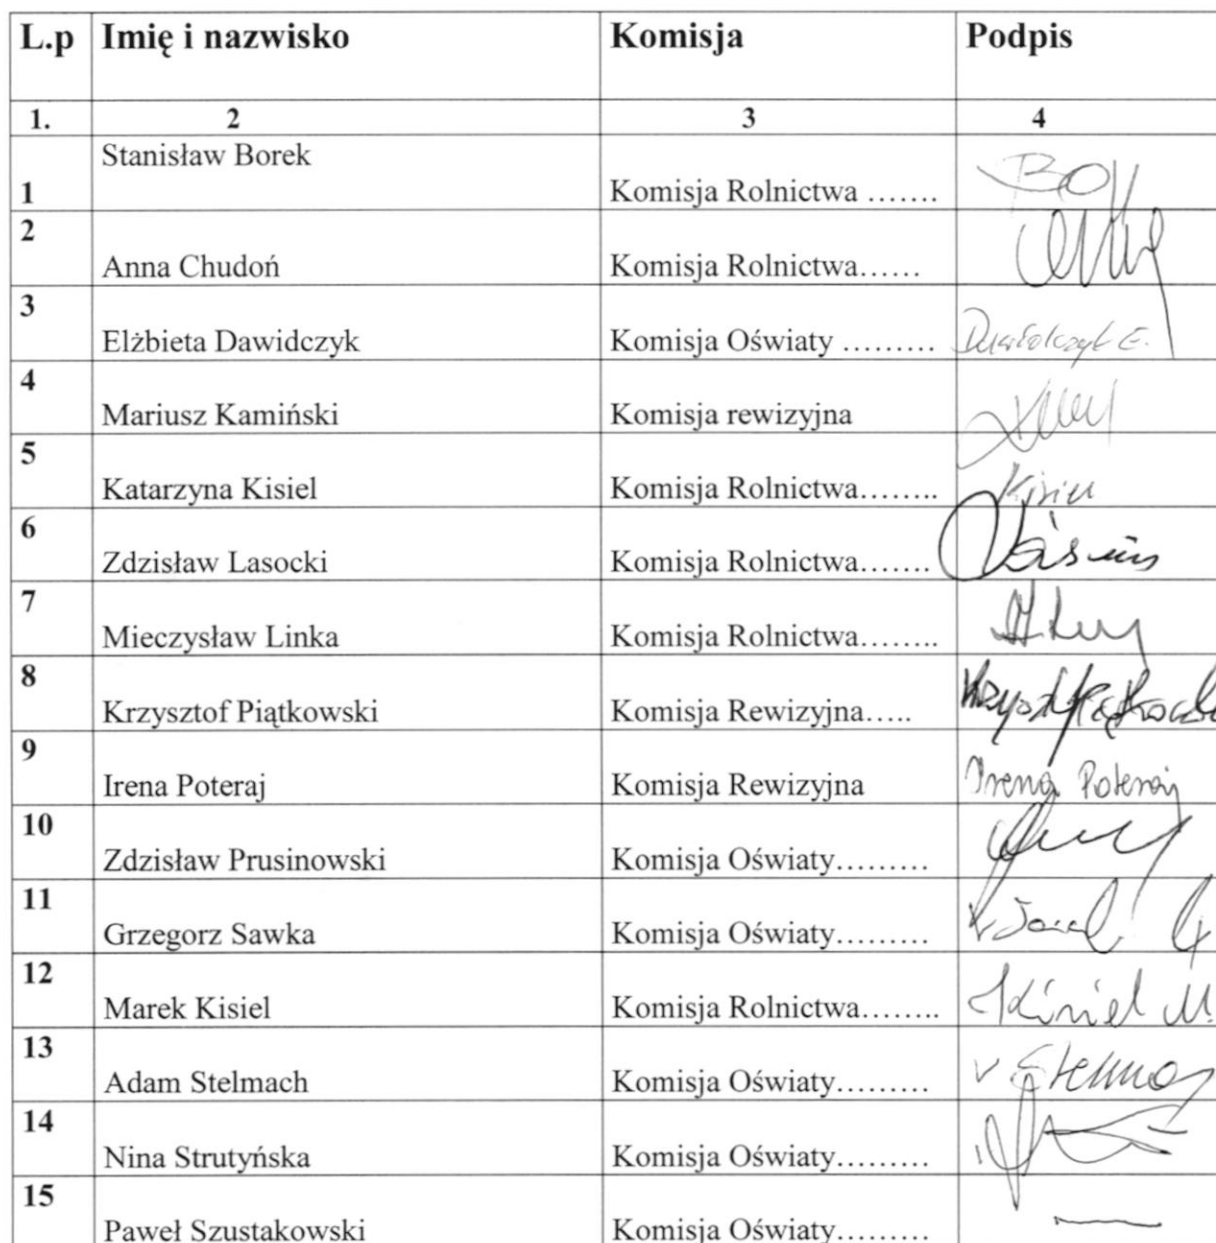 L.p Imię i nazwisko Komisja Podpis
1. 2 3 4
Stanisław Borek
1 Komisja Rolnictwa .......
2
Anna Chudoń Komisja Rolnictwa......
3
Elżbieta Dawidczyk Komisja Oświaty .........
4
Mariusz Kamiński Komisja rewizyjna
5
Katarzyna Kisiel Komisja Rolnictwa........ Kisiel
6
Zdzisław Lasocki Komisja Rolnictwa.......
7
Mieczysław Linka Komisja Rolnictwa........
8
Krzysztof Piątkowski Komisja Rewizyjna.....
9
Irena Poteraj Komisja Rewizyjna Irena Poteraj
10
Zdzisław Prusinowski Komisja Oświaty.........
11
Grzegorz Sawka Komisja Oświaty.........
12
Marek Kisiel Komisja Rolnictwa........ Kisiel M.
13
Adam Stelmach Komisja Oświaty.........
14
Nina Strutyńska Komisja Oświaty.........
15
Paweł Szustakowski Komisja Oświaty.........